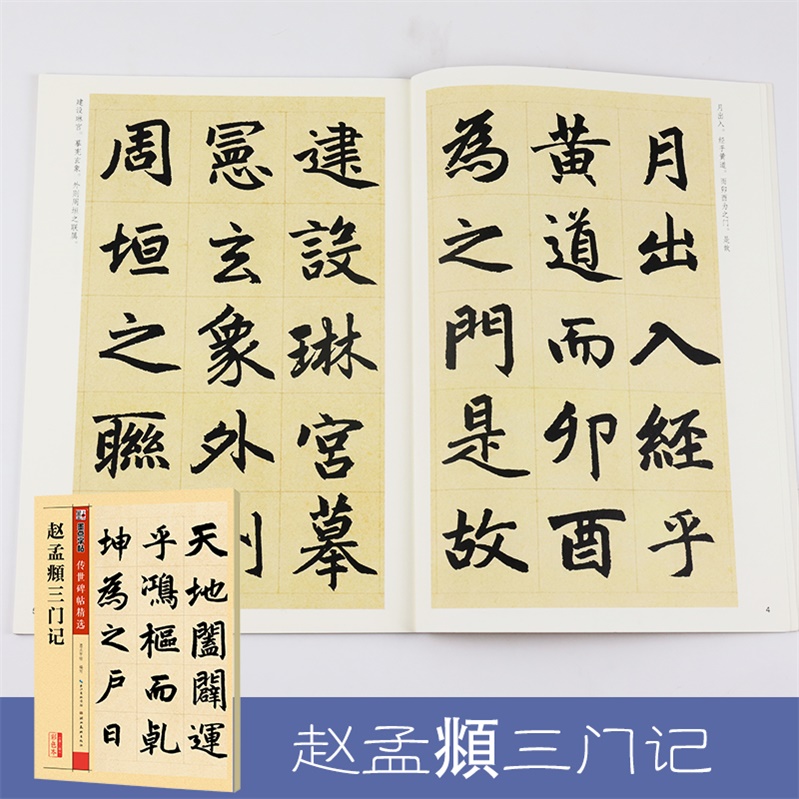 月出入，经乎黄道。而卯酉为之门，是故
月出入經乎
黄道而卯酉
為之門是故
4
建设琳宫，摹宪玄象，外则周垣之联属。
建設琳宮摹
憲玄象外
周垣之聯
墨点字帖
传世碑帖精选
赵孟頫三门记
天地闔闢運
乎鴻樞而乹
坤為之户日
彩色本
赵孟頫三门记